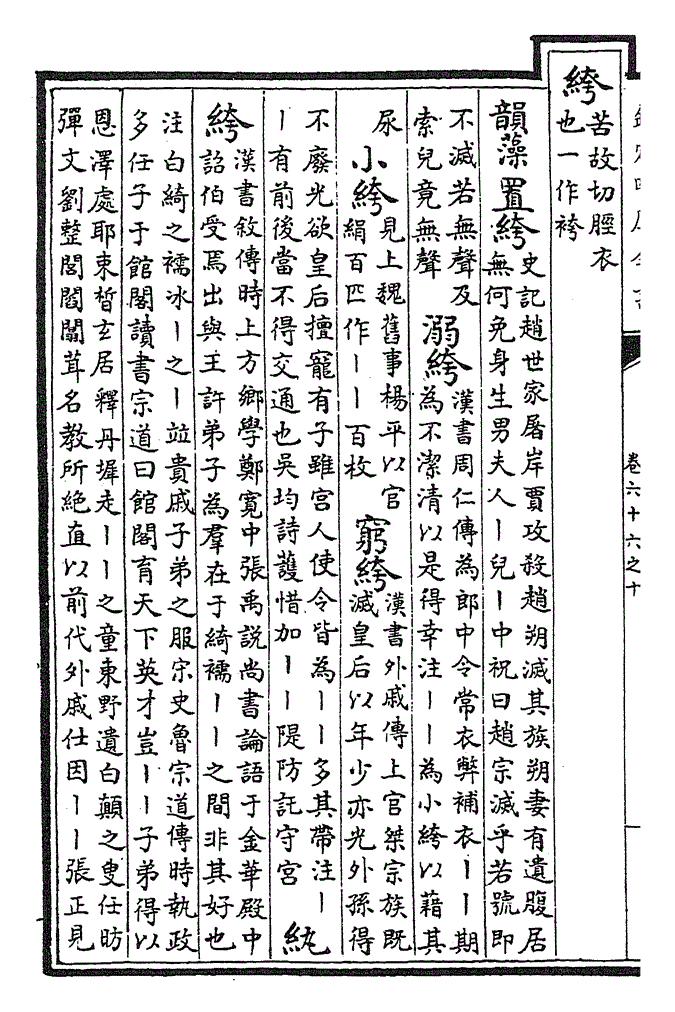 欽定四庫全書
卷六十六之十
絝
苦故切脛衣
也一作袴
韻藻 置絝
史記趙世家屠岸賈攻殺趙朔滅其族朔妻有遺腹居
無何免身生男夫人丨兒丨中祝曰趙宗滅乎若號即
不滅若無聲及
索兒竟無聲
溺絝
漢書周仁傳為郎中令常衣弊補衣丨丨期
為不潔清以是得幸注丨丨為小絝以藉其
尿
小絝
見上魏舊事楊平以官
絹百匹作丨丨百枚
窮絝
漢書外戚傳上官桀宗族既
滅皇后以年少亦光外孫得
不廢光欲皇后擅寵有子雖宫人使令皆為丨丨多其帶注丨
丨有前後當不得交通也吳均詩䕶惜加丨丨隄防託守宫
紈
絝
漢書敘傳時上方鄉學鄭寬中張禹説尚書論語于金華殿中
詔伯受焉出與王許弟子為羣在于綺襦丨丨之間非其好也
注白綺之襦冰丨之丨竝貴戚子弟之服宋史魯宗道傳時執政
多任子于館閣讀書宗道曰館閣育天下英才豈丨丨子弟得以
恩澤處耶束晳玄居釋丹墀走丨丨之童東野遺白顛之叟任昉
彈文劉整閭閻闒茸名教所絶直以前代外戚仕因丨丨張正見